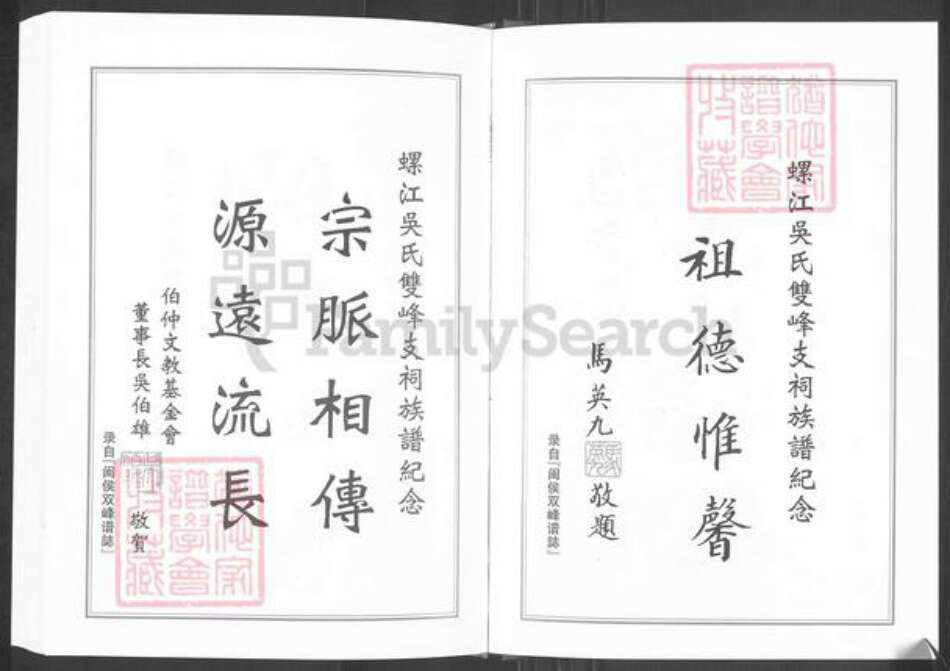 螺江吳氏雙峰支祠族譜紀念
祖德惟馨
馬英九 敬題
录自『闽侯双峰谱誌』
螺江吳氏雙峰支祠族譜紀念
宗脈相傳
源遠流長
伯仲文教基金會
董事長吳伯雄 敬賀
录自『闽侯双峰谱誌』
譜學會
收藏
FamilySearch